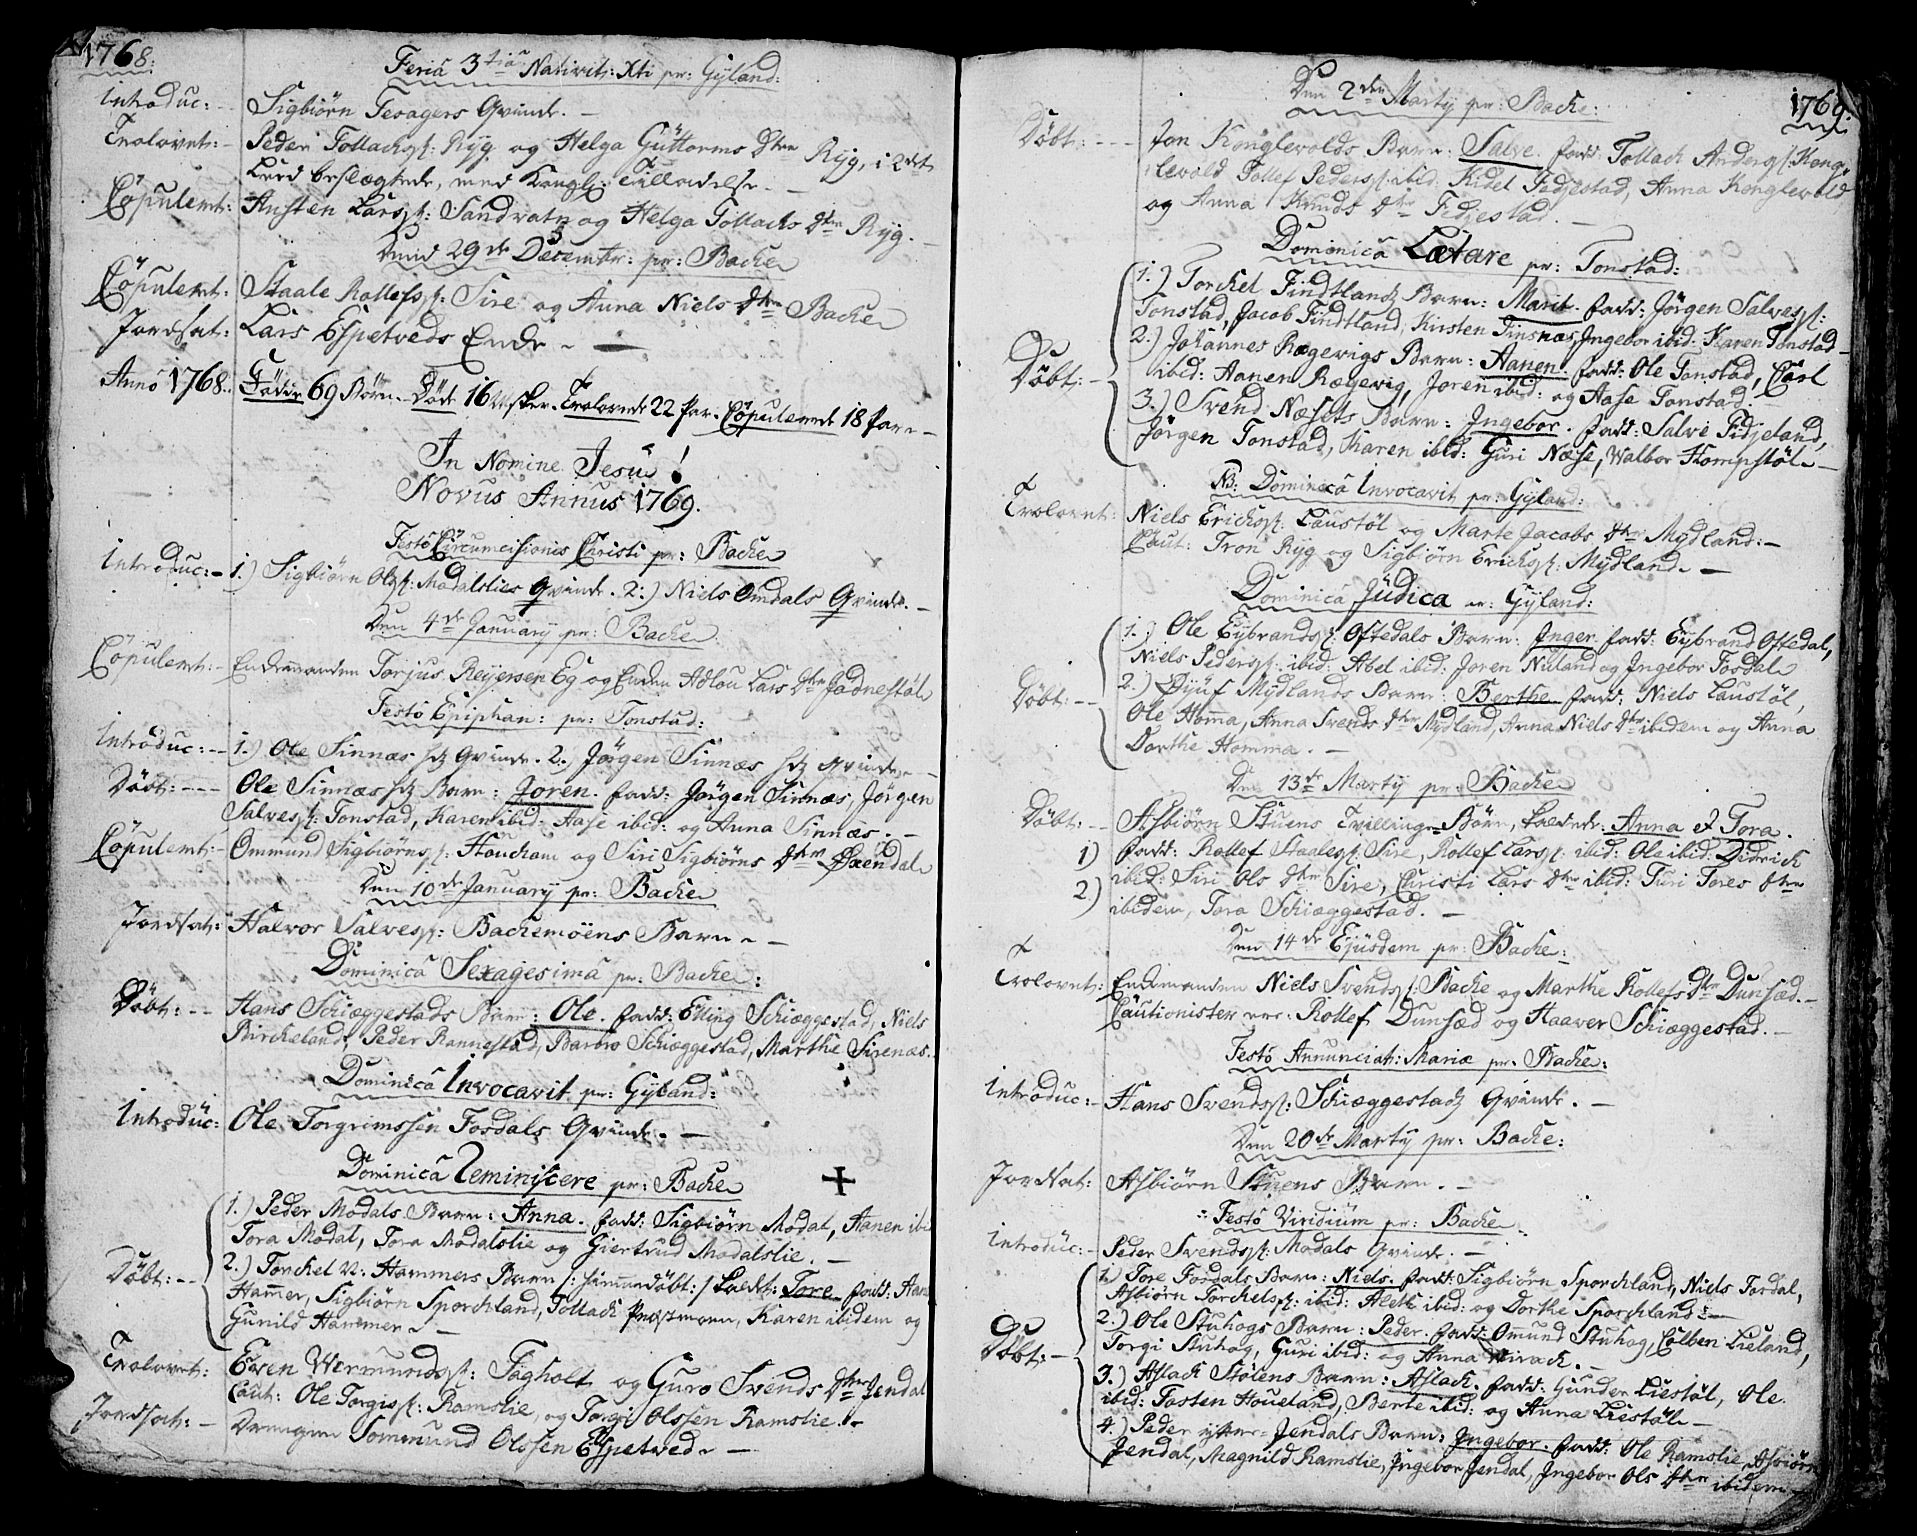 1768:
Feria 3tia Nativit: Xti pr: Gyland:
Introduc: Sigbiørn Tesagers Qvinde. –
Trolovet: Peder Tollachs: Ryg og Helga Guttorms Dtter Ryg, i 2det
Leed beslægtede, med Kongl: Tilladelse. –
Copulert: Austen Lars: Sandvatn og Helga Tollachs Dtter Ryg. –
29de Decembr: pr: Backe
Copulert: Staale Rollefs: Sire og Anna Niels Dtter Backe
Jordsat: Lars Espetveds Encke –
Anno 1768. Fødde 69 Børn. Døde 16 Msker. Trolovede 22 Par. Copulerede 18 Par. –
In Nomine Jesu!
Novus Annus 1769.
Festo Circumcisionis Christi pr: Backe
Introduc: – 1.) Sigbiørn Ols: Modalslies Qvinde. 2.) Niels Omdals Qvinde. –
Den 4de January pr: Backe
Copulert: – Enckemanden Torjus Reyersen Eg og Encken Adlou Lars Dtter Jodnestøl
Festo Epiphan: pr: Tonstad:
Introduc: – 1.) Ole Sinnæs Qvinde. 2.) Jørgen Sinnæs Qvinde. –
Døbt: – Ole Sinnæs Barn: Joren. fadd: Jørgen Sinnæs, Jørgen
Salves: Tonstad, Karen ibid: Aase ibid: og Anna Sinnæs. –
Copulert: – Ommund Sigbiørns: Houcham og Siri Sigbiørns Dtter
Den 10de January pr: Backe
Jordsat: Halvor Salves: Backemoens Barn. –
Dominica Sexagesima pr: Backe:
Døbt: – Hans Schiæggestads Barn: Ole. fadd: Elling Schiæggestad, Niels
Bircheland, Peder Rannestad, Barbro Schiæggestad, Marthe Sirenæs.
Dominica Invocavit pr: Gyland:
Introduc: Ole Torgrimssen Fosdals Qvinde. –
Dominica Reminiscere pr: Backe
1.) Peder Modals Barn: Anna. fadd: Sigbiørn Modal, Aanen ibi
Tora Modal, Tora Modalslie og Giertrud Modalslie. –
Døbt: – 2.) Torchel N: Hammers Barn /: hiemmedøbt :/ kaldt: Tore fadd:
Hammer, Sigbiørn Sporchland, Tollach Prestmoen, Karen ibidem og
Gunild Hammer. –
Trolovet: Even Wermunds: Fagholt og Guro Svends Dtter Jendal
Caut: Ole Torgis: Ramslie, og Torgi Olssen Ramslie. –
Jordsat: – Drengen Sommund Olssen Espetved. –
1769.
Den 2den Marty pr: Backe:
Døbt: – Jon Konglevolds Barn: Salve. fadd: Tollach Anders: Kong-
levold Tollef Peders: ibid: Kidel Fedjestad, Anna Konglevold
og Anna Knuds Dtter Fedjestad. –
Dominica Lætare pr: Tonstad:
1.) Torchel Findtlands Barn: Marit. fadd: Jørgen Salves:
Tonstad, Jacob Findtland, Kirsten Finsnæs, Ingebor ibid: Karen Tonstad
Døbt: – 2.) Johannes Rægevigs Barn: Aanen. fadd: Ole Tonstad, Carl
ibid: Aanen Rægevig, Joren ibid: og Aase Tonstad
3.) Svend Næsets Barn: Ingebor. fadd: Salve Fidjeland,
Jørgen Tonstad, Karen ibid: Guri Næse, Walbor Hompstøl –
NB: Dominica Invocavit pr: Gyland:
Trolovet: Niels Erichs: Laustøl og Marte Jacobs Dtter Mydland: –
Caut: Tron Ryg og Sigbiørn Erichs: Mydland. –
Dominica Judica pr: Gyland:
1.) Ole Eybrands: Oftedals Barn: Inger. fadd: Eybrand Oftedal,
Niels Peders: ibid: Abel ibid: Joren Nuland og Ingebor Fosdal
Døbt: – 2.) Mydlands Barn: Berthe. fadd: Niels Laustøl,
Ole Homma, Anna Svends Dtter Mydland, Anna Niels Dtter ibidem og Anna
Dorthe Homma. –
Den 13de Marty pr: Backe
Døbt: – Asbiørn Stuens Tvillinge Børn, kaldede: Anna et Tora.
1) fadd: Rollef Staales: Sire, Rollef Lars: ibid: Ole ibid: Didrich
2) ibid: Siri Ols Dtter Sire, Christi Lars Dtter ibid: Turi Tores Dtter
ibidem, Tora Schiæggestad. –
Den 14de Ejusdem pr: Backe:
Trolovet: Enckemanden Niels Svends: Backe og Marthe Rollefs Dtter Dunsæd. –
Cautionister ere: Rollef Dunsæd og Haaver Schiæggestad. –
Festo Annunciat: Mariæ pr: Backe:
Introduc: – Hans Svends: Schiæggestads Qvinde. –
Den 20de Marty pr: Backe:
Jordsat: Asbiørn Stuens Barn. –
Festo Viridium pr: Backe
Introduc: – Peder Svends: Modals Qvinde. –
1.) Tore Fosdals Barn: Niels. fadd: Sigbiørn Sporchland, Niels Fosdal,
Asbiørn Torchels: ibid: Aleth ibid: og Dorthe Sporchland: –
Døbt: – 2.) Ole Stuhogs Barn: Peder. fadd: Omund Stuhog, Colben Lieland,
Torgi Stuhog, Guri ibid: og Anna Virach. –
3.) Aslach Stølens Barn: Aslach. fadd: Gunder Liestøl, Ole
ibid: Tosten Houeland, Berte ibid: og Anna Liestøl –
4.) Peder ytter-Jendals Barn: Ingebor. fadd: Ole Ramslie, Asbiørn
Jendal, Magnild Ramslie, Ingebor Jendal, Ingebor Ols Dtter ibidem –